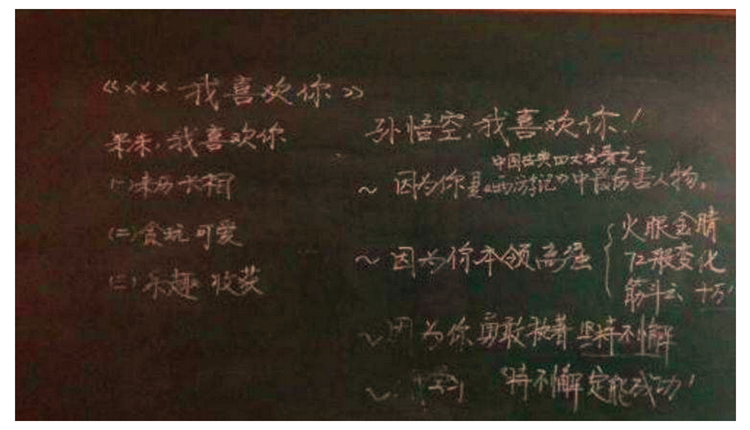 《××× 我喜欢你》
果来,我喜欢你
(一)来历 长相
(二)贪玩 可爱
(三)乐趣 收获
孙悟空,我喜欢你!
中国古典四大名著之一
~ 因为你是《西游记》中最厉害人物。
~ 因为你本领高强
火眼金睛
72般变化
筋斗云 十万
~ 因为你勇敢执着 坚持不懈
~ 持不懈定能成功